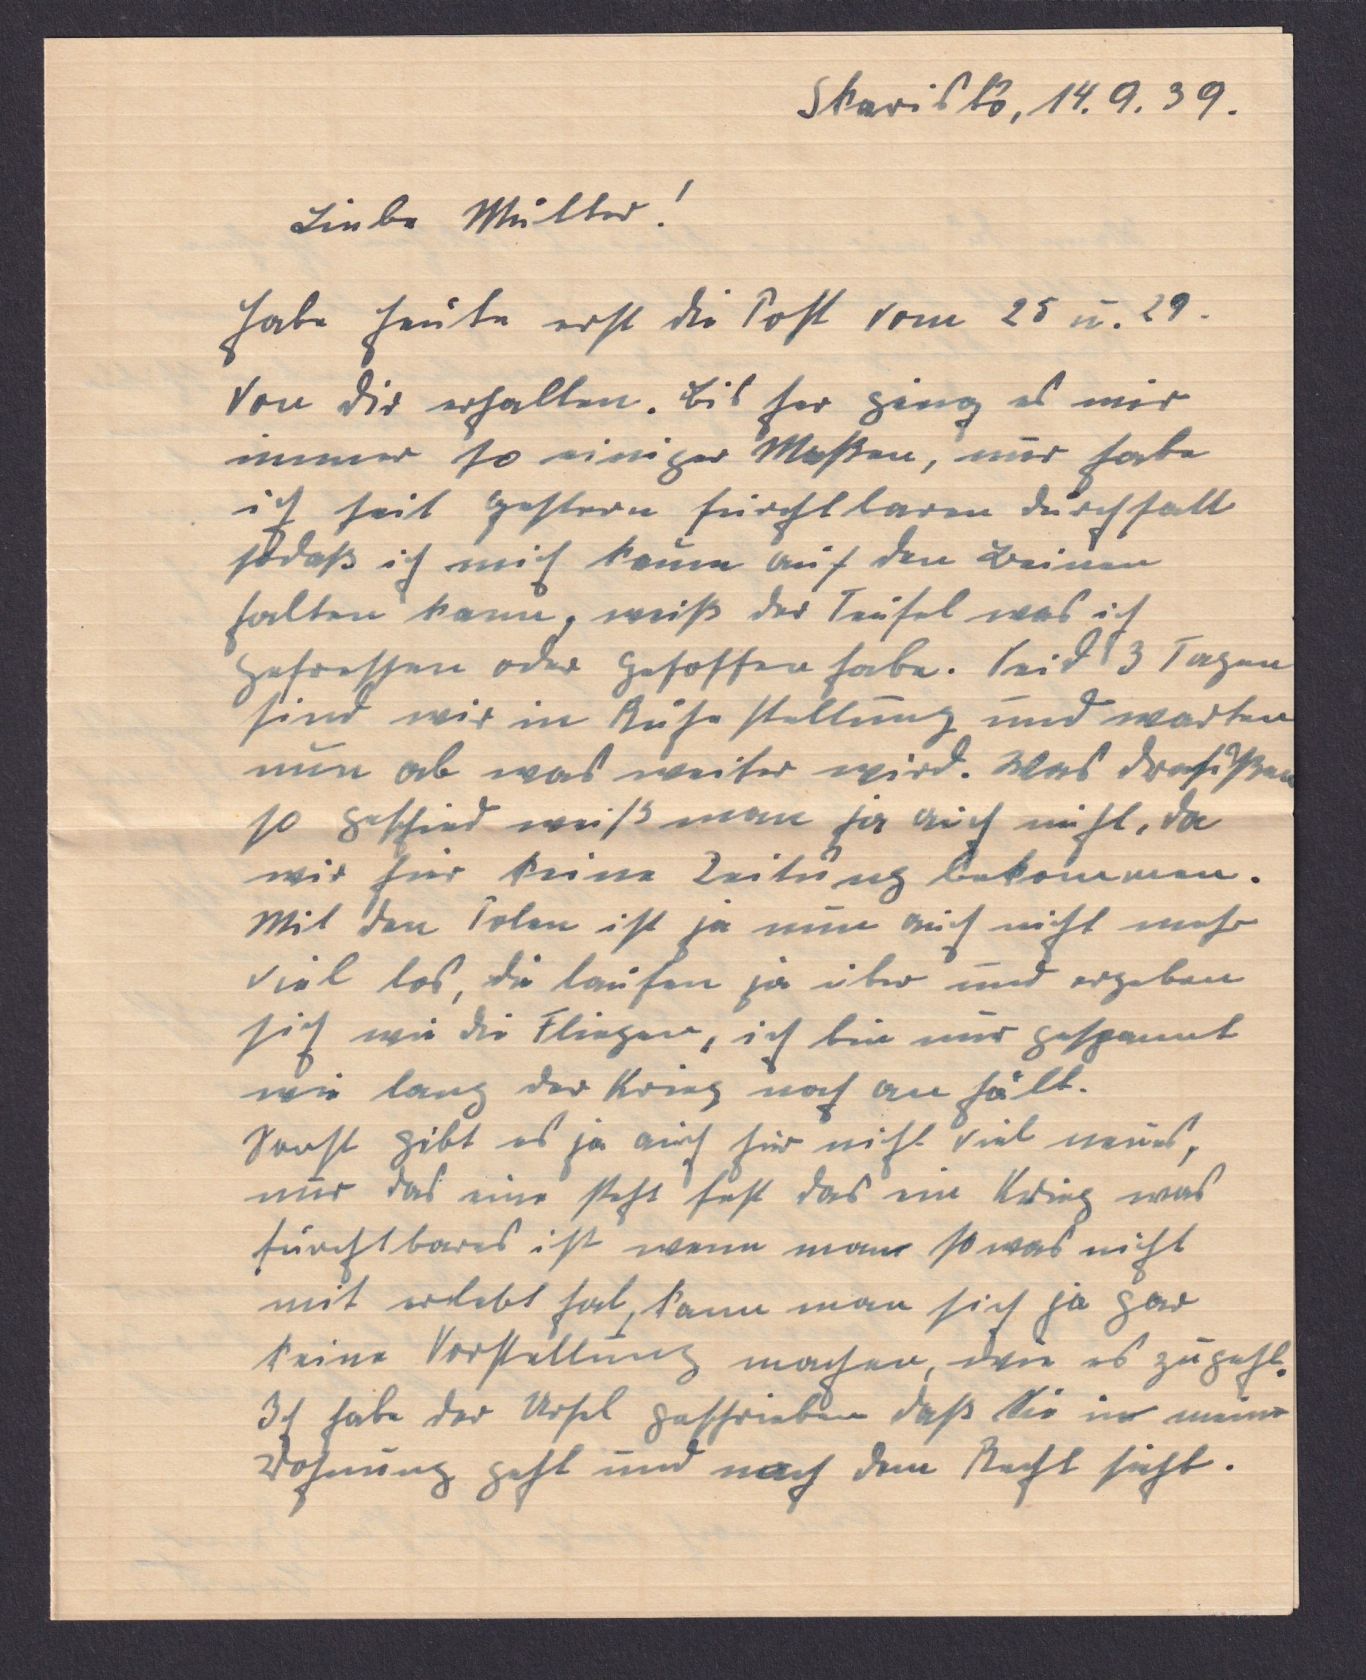 Skarisko, 14.9.39.
Liebe Mutter!
Habe heute erst die Post vom 25 u. 29.
von dir erhalten. Bis her ging es mir
immer so einiger Maßen, nur habe
ich seit gestern furchtbaren durchfall
sodaß ich mich kaum auf den Beinen
halten kann, weiß der Teufel was ich
gefressen oder gesoffen habe. Seid 3 Tagen
sind wir in Ruhe stellung und warten
nun ab was weiter wird. Was draußen
so geschied weiß man ja auch nicht, da
wir hier keine Zeitung bekommen.
Mit den Polen ist ja nun auch nicht mehr
viel los, die laufen ja über und ergeben
sich wie die Fliegen, ich bin nur gespannt
wie lang der Krieg noch an hält.
Sonst gibt es ja auch hier nicht viel neues,
nur das eine steht fest das ein Krieg was
furchtbares ist wenn man so was nicht
mit erlebt hat, kann man sich ja gar
keine Vorstellung machen, wie es zugeht.
Ich habe der Ursel geschrieben daß Sie in meine
Wohnung geht und nach dem Recht sieht.